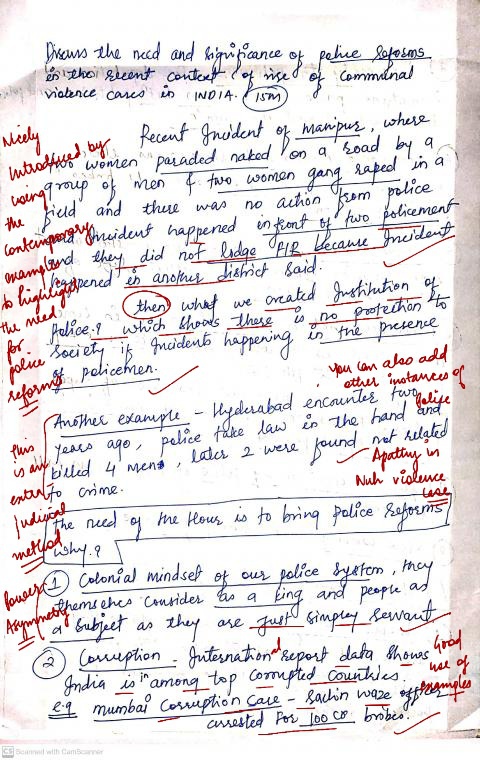 Discuss the need and significance of police reforms
in the recent context of rise of communal
violence cases in INDIA. 15m
Nicely
Introduced by
using
the
contemporary
example
to highlight
the need
for
police
reforms
Recent Incident of manipur, where
two women paraded naked on a road by a
group of men & two women gang raped in a
field and there was no action from police
and Incident happened infront of two policement
and they did not lodge FIR because Incident
happened in another district said.
then what we created Institution of
Police? which shows there is no protection to
Society if Incidents happening in the presence
of policemen.
you can also add
other instances of
police
Apathy in
Nuh violence
case
Another example - Hyderabad encounter two
years ago, police take law in the hand and
killed 4 mens, later 2 were found not related
to crime.
This
is an
extra
Judicial
method
The need of the Hour is to bring Police Reforms
Why?
Power
Asymmetry
1 Colonial mindset of our police System, they
themselves consider as a king and people as
a Subject as they are Just simply servant
2 Corruption - International report data shows
India is in among top Corrupted Countries.
e.g mumbai Corruption Case - Sachin waze officer
arrested for 100 cr bribes.
Good
use of
examples
CS Scanned with CamScanner